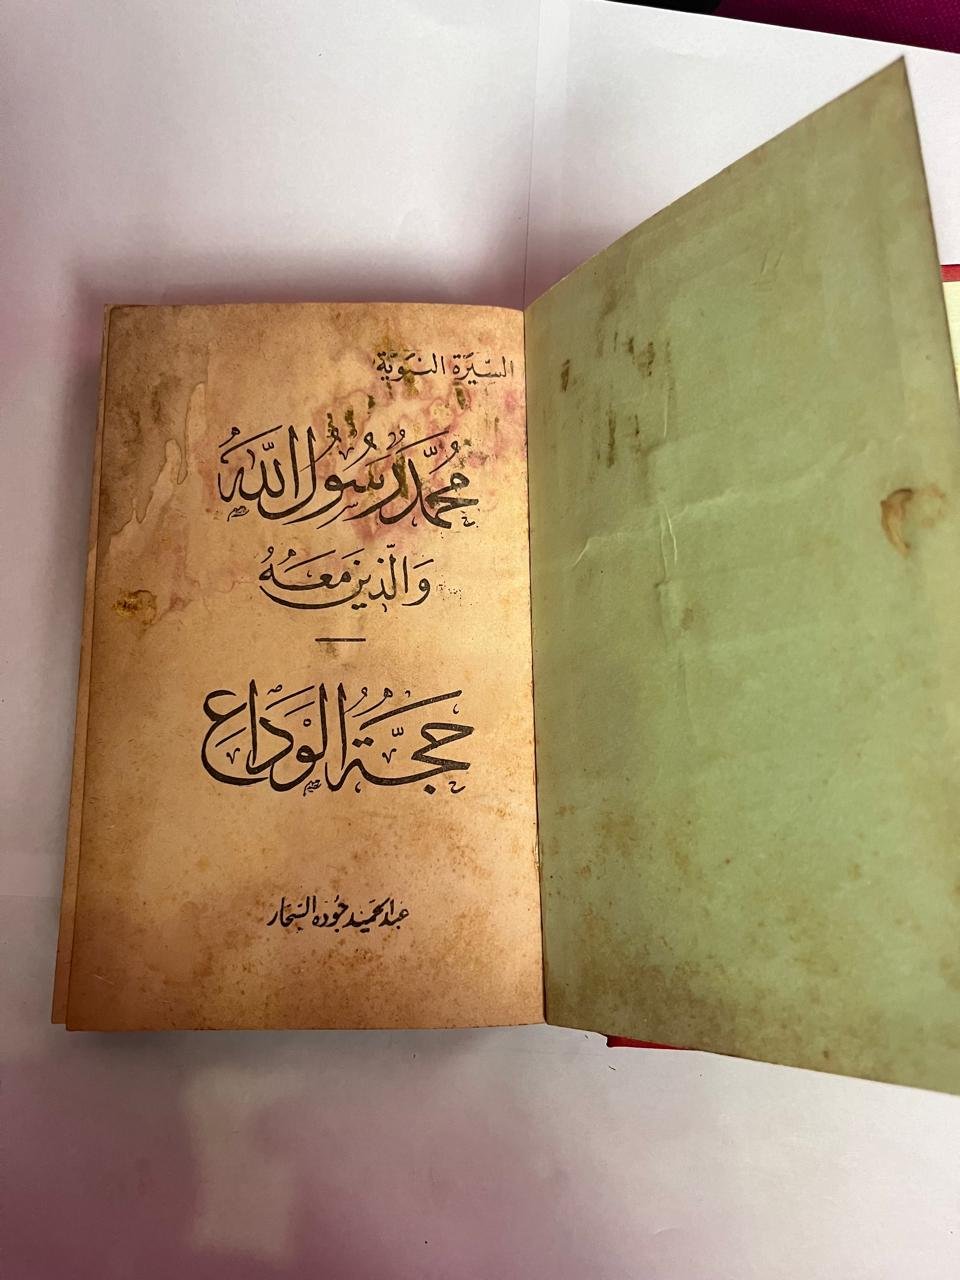 السِّيرَة النَّبَوِيَّة
مُحَمَّدٌ رَسُولُ اللهِ
وَالَّذِينَ مَعَهُ
حَجَّةُ الْوَدَاعِ
عبد الحميد جوده السحار